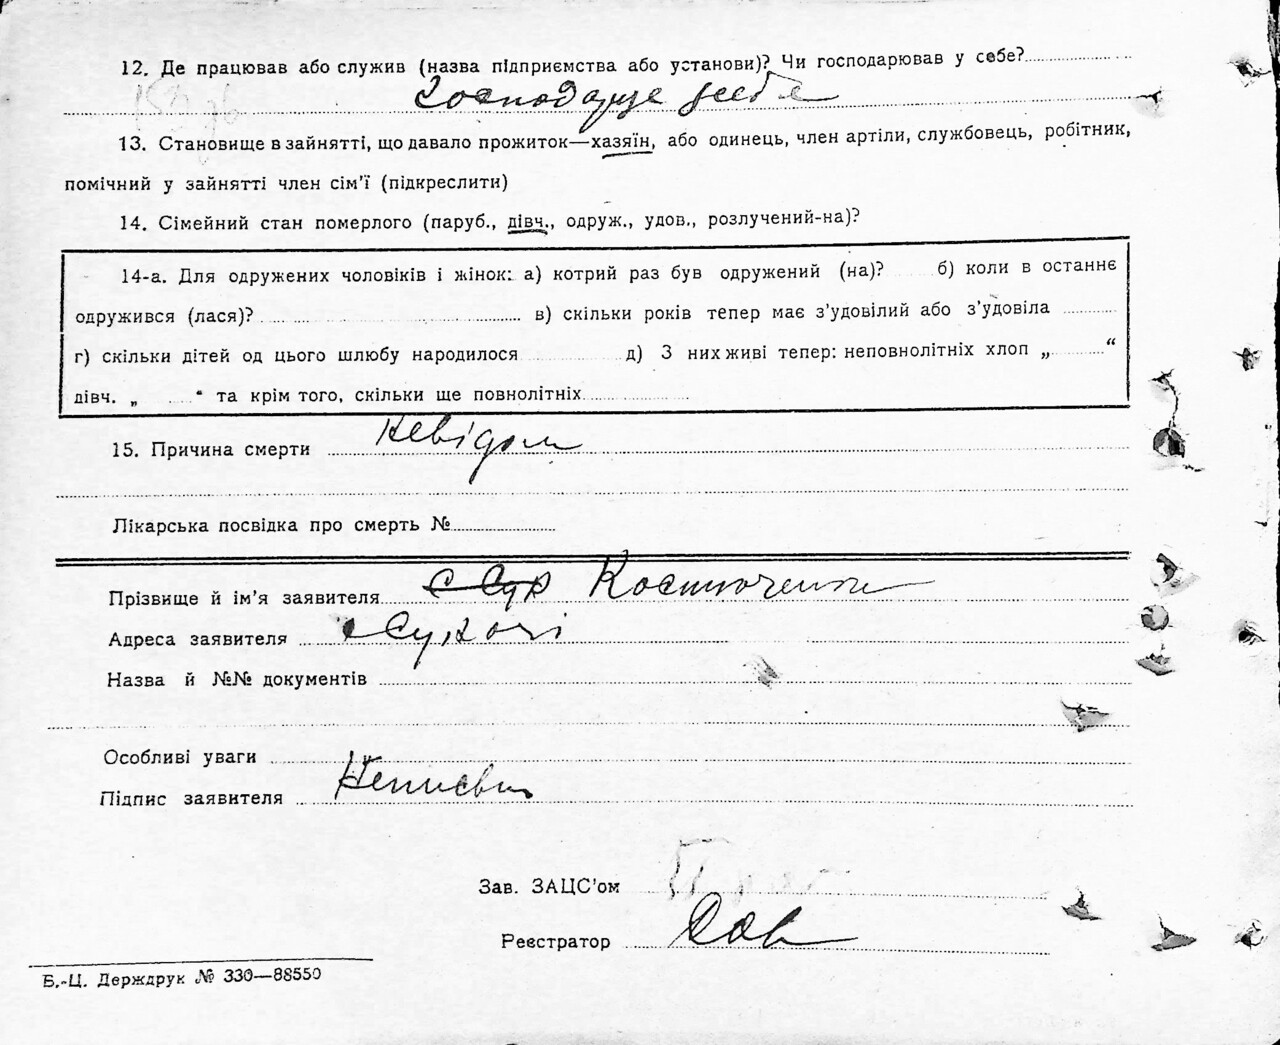 12. Де працював або служив (назва підприємства або установи)? Чи господарював у себе?
Господарює у себе
13. Становище в зайнятті, що давало прожиток—хазяїн, або одинець, член артіли, службовець, робітник,
помічний у зайнятті член сім'ї (підкреслити)
14. Сімейний стан померлого (паруб., дівч., одруж., удов., розлучений-на)?
14-а. Для одружених чоловіків і жінок: а) котрий раз був одружений (на)? б) коли в останнє
одружився (лася)? в) скільки років тепер має з'удовілий або з'удовіла
г) скільки дітей од цього шлюбу народилося д) З них живі тепер: неповнолітніх хлоп „ “
дівч. „ “ та крім того, скільки ще повнолітніх
15. Причина смерти Невідом
Лікарська посвідка про смерть №
Прізвище й ім'я заявителя Костюченко
Адреса заявителя
Назва й №№ документів
Особливі уваги
Підпис заявителя Неписьм
Зав. ЗАЦС'ом
Реєстратор
Б.-Ц. Держдрук № 330—88550